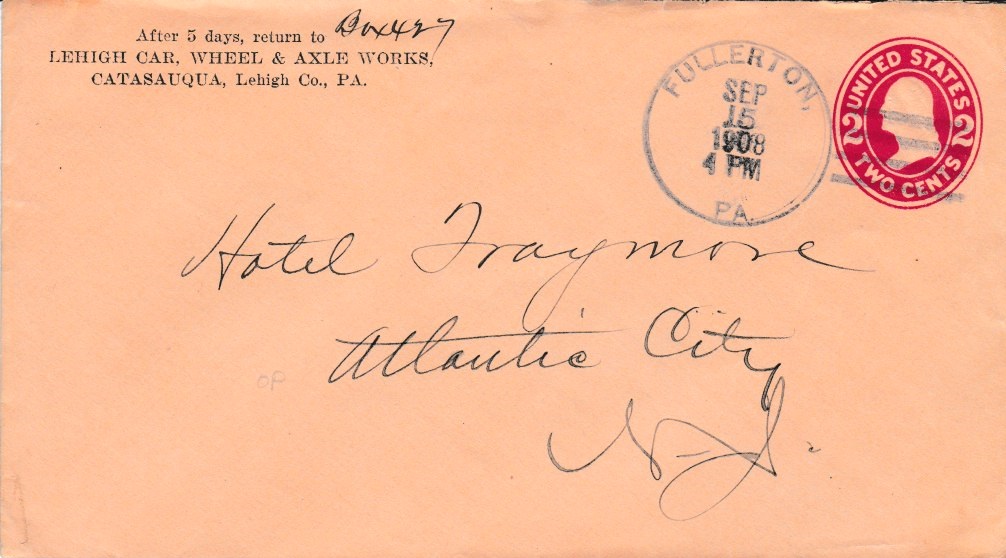 After 5 days, return to Box 427
LEHIGH CAR, WHEEL & AXLE WORKS,
CATASAUQUA, Lehigh Co., PA.
FULLERTON,
SEP
15
1908
4 PM
PA.
UNITED STATES
2 2
TWO CENTS
Hotel Traymore
Atlantic City
N.J.
OP